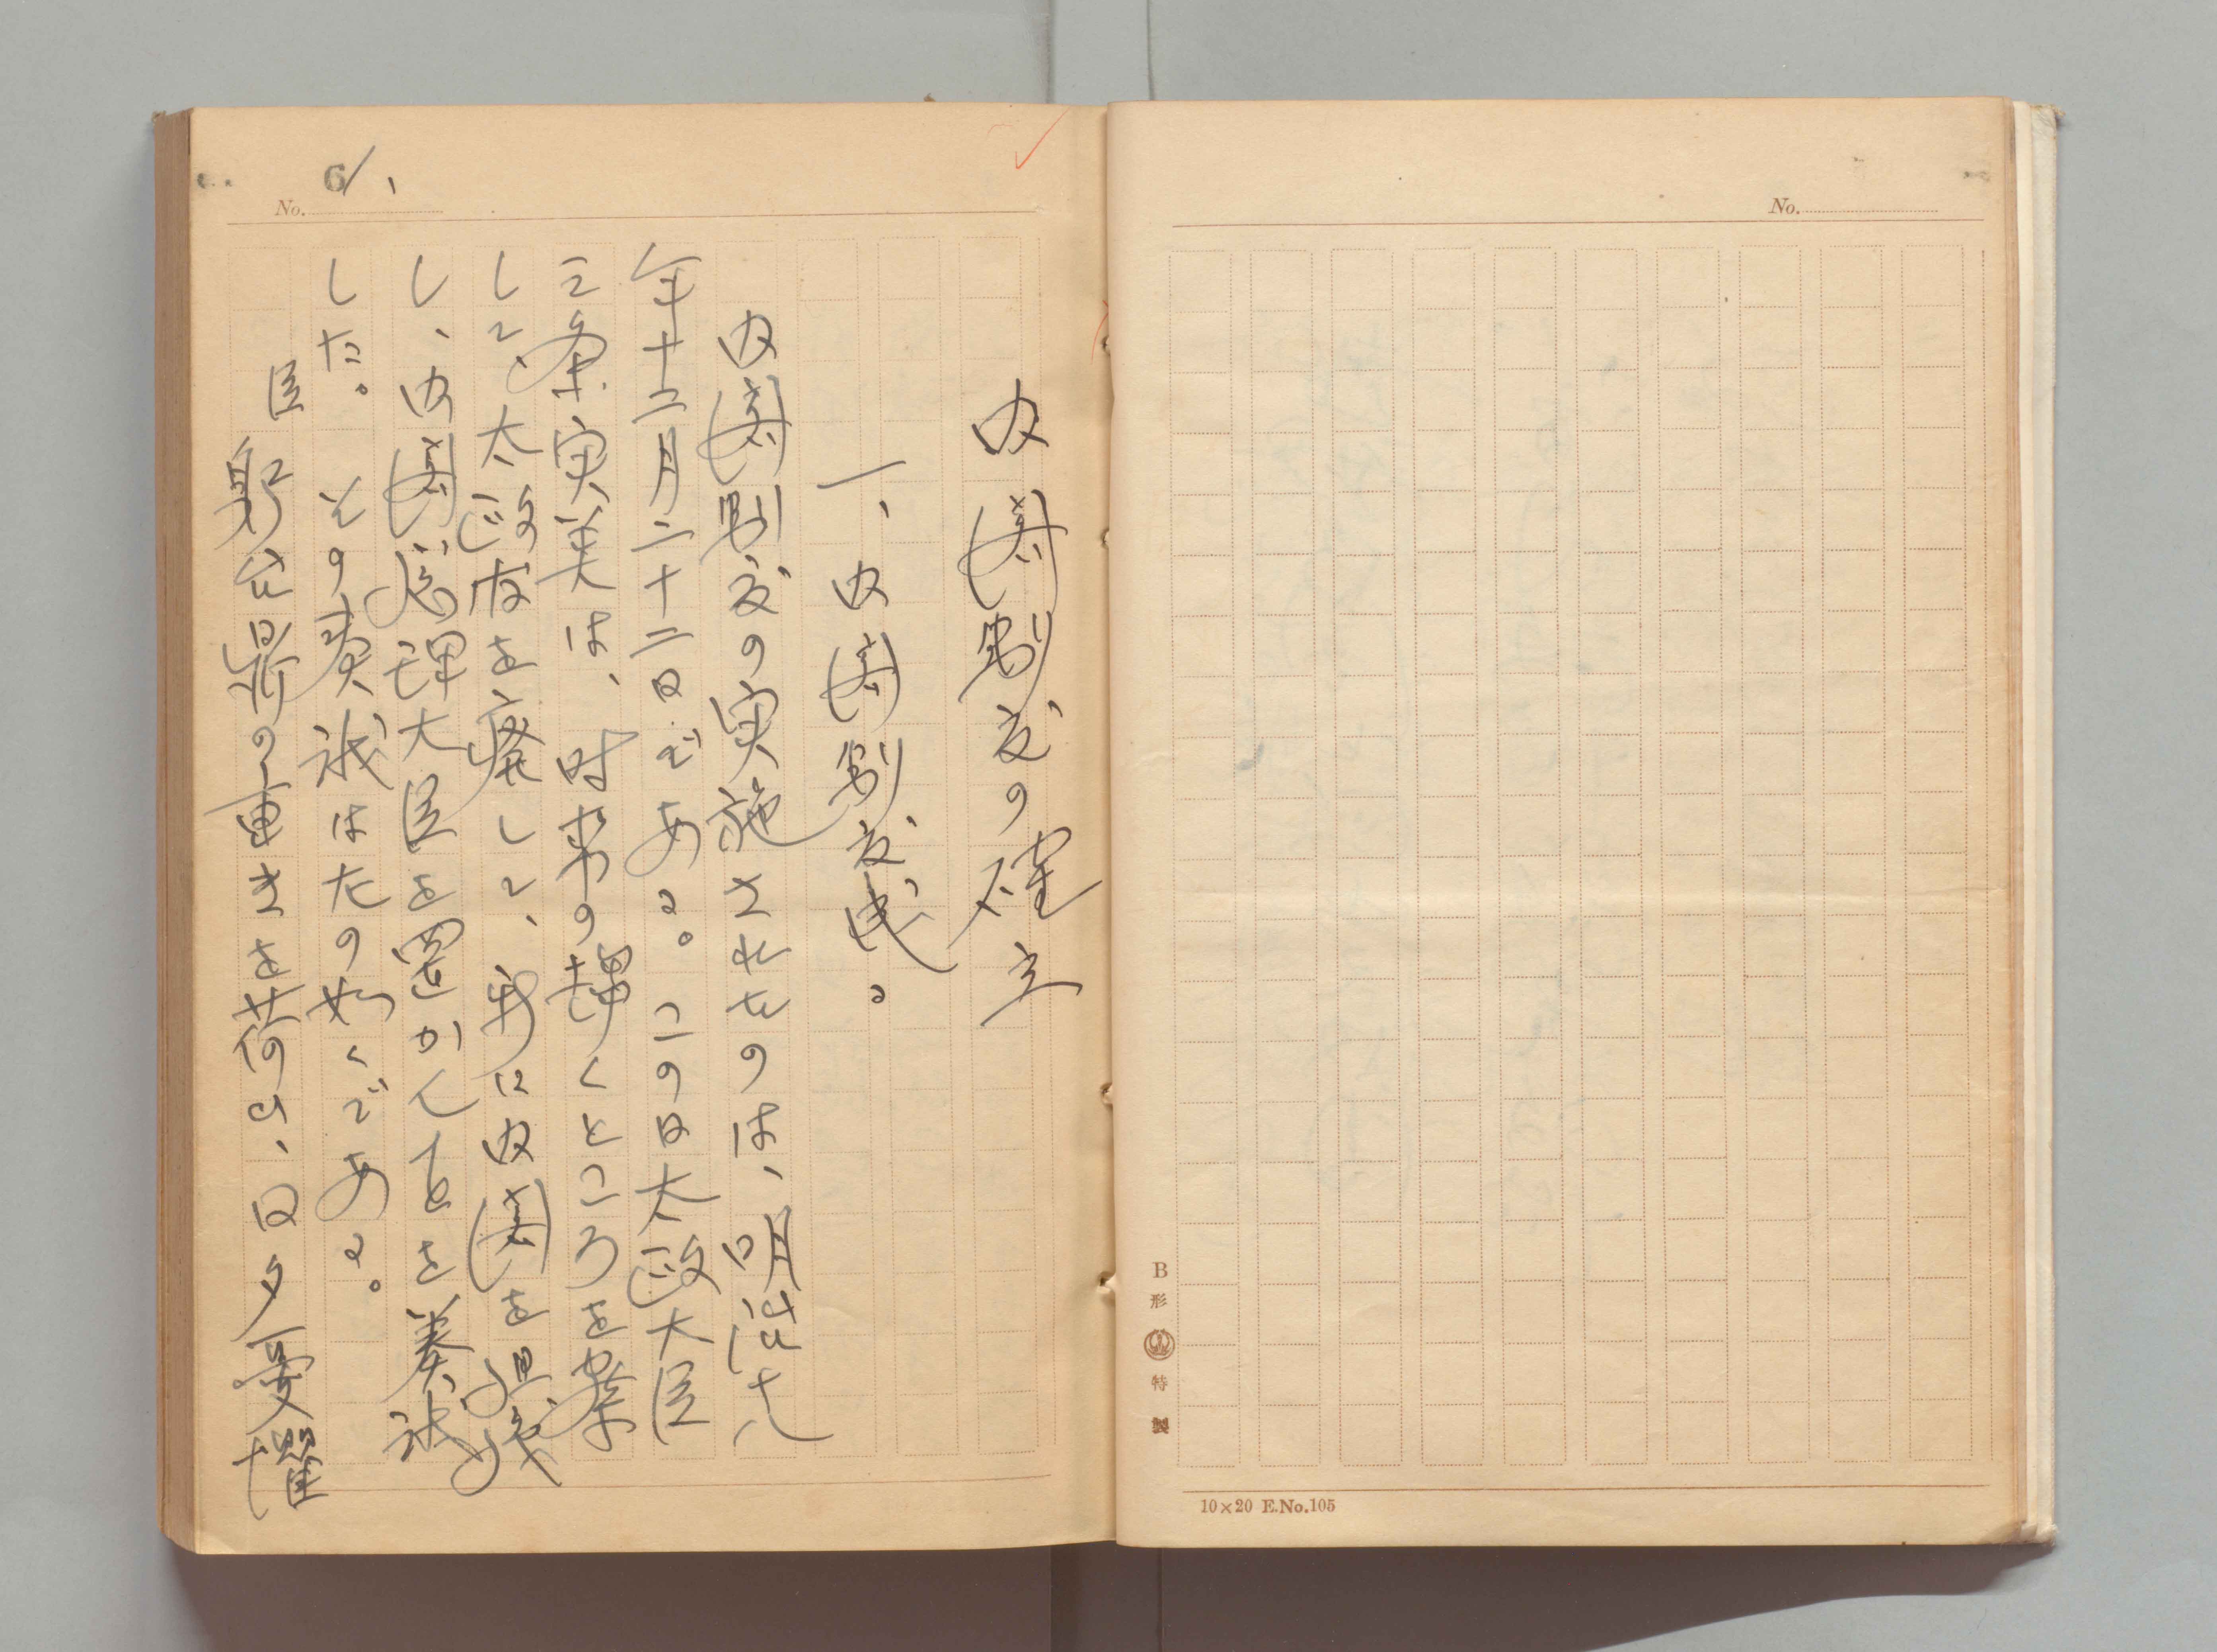 No.
B形 特製
10×20 E.No.105
No. 6
内閣制度の確立
一、内閣制度成る
内閣制度の実施されたのは、明治十八
年十二月二十二日である。この日太政大臣
三条実美は、時勢の趨くところを察
して太政官を廃して、新に内閣を組織
し、内閣総理大臣を置かんことを奏議
した。その奏議は左の如くである。
臣躬台鼎の重きを荷い、日夕憂懼